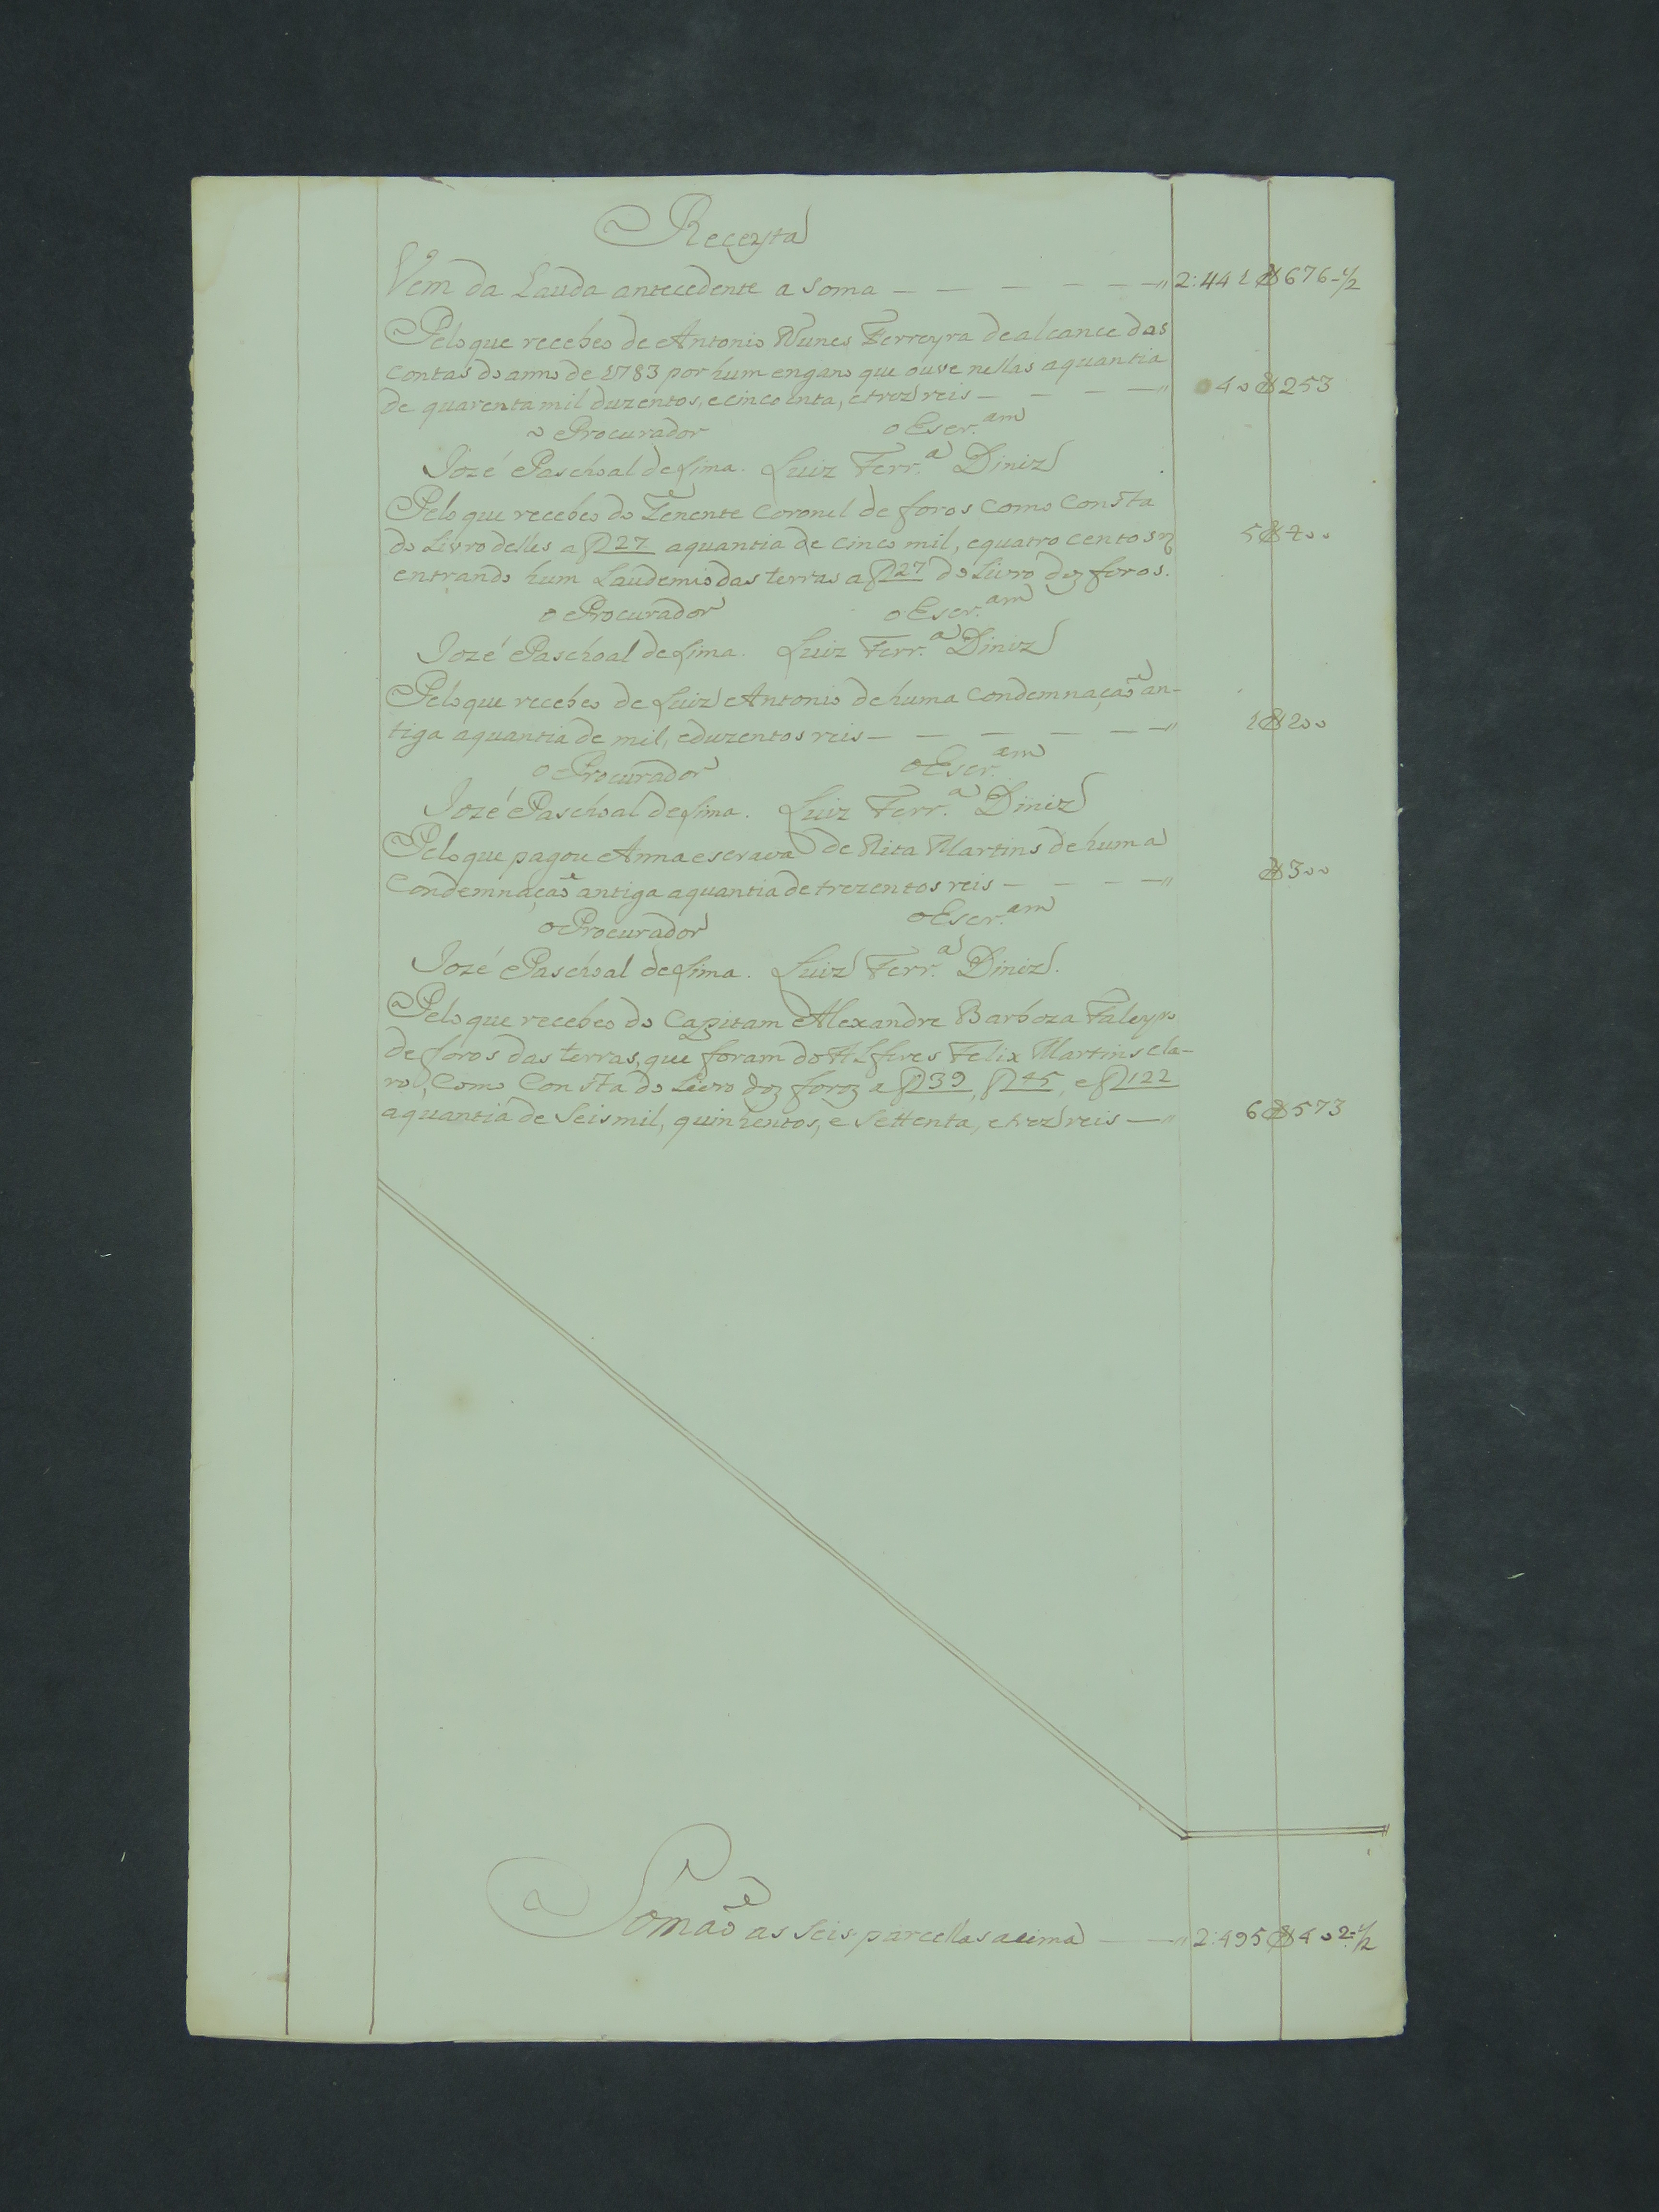 Receyta
Vem da Lauda antecedente a soma — — — — — —" 2:441$676-1/2
Pelo que recebeo de Antonio Nunes Ferreyra de alcance das
contas do anno de 1783 por hum engano que ouve nellas a quantia
de quarenta mil duzentos, e cincoenta, e trez reis — — — —" 40$253
o Procurador o Escr.am
Jozé Paschoal de Lima. Luiz Ferr.a Diniz
Pelo que recebeo do Tenente Coronel de foros como Consta
do Livro delles a f 27 a quantia de cinco mil, e quatro centos rs 5$400
entrando hum Laudemio das terras a f 27 do Livro dos foros.
o Procurador o Escr.am
Jozé Paschoal de Lima. Luiz Ferr.a Diniz
Pelo que recebeo de Luiz Antonio de huma Condemnação an-
tiga a quantia de mil, e duzentos reis — — — — — —" 1$200
o Procurador o Escr.am
Jozé Paschoal de Lima. Luiz Ferr.a Diniz
Pelo que pagou Anna escrava de Rita Martins de huma
Condemnação antiga a quantia de trezentos reis — — — —" $300
o Procurador o Escr.am
Jozé Paschoal de Lima. Luiz Ferr.a Diniz.
Pelo que recebeo do Capitam Alexandre Barboza Faleyro
de foros das terras, que foram do Alferes Felix Martins Cla-
ro, Como Consta do Livro dos foros a f 39, f 45, e f 122
a quantia de Seis mil, quinhentos, e Settenta, e trez reis —" 6$573
Somão as Seis parcellas acima — —" 2:495$402-1/2